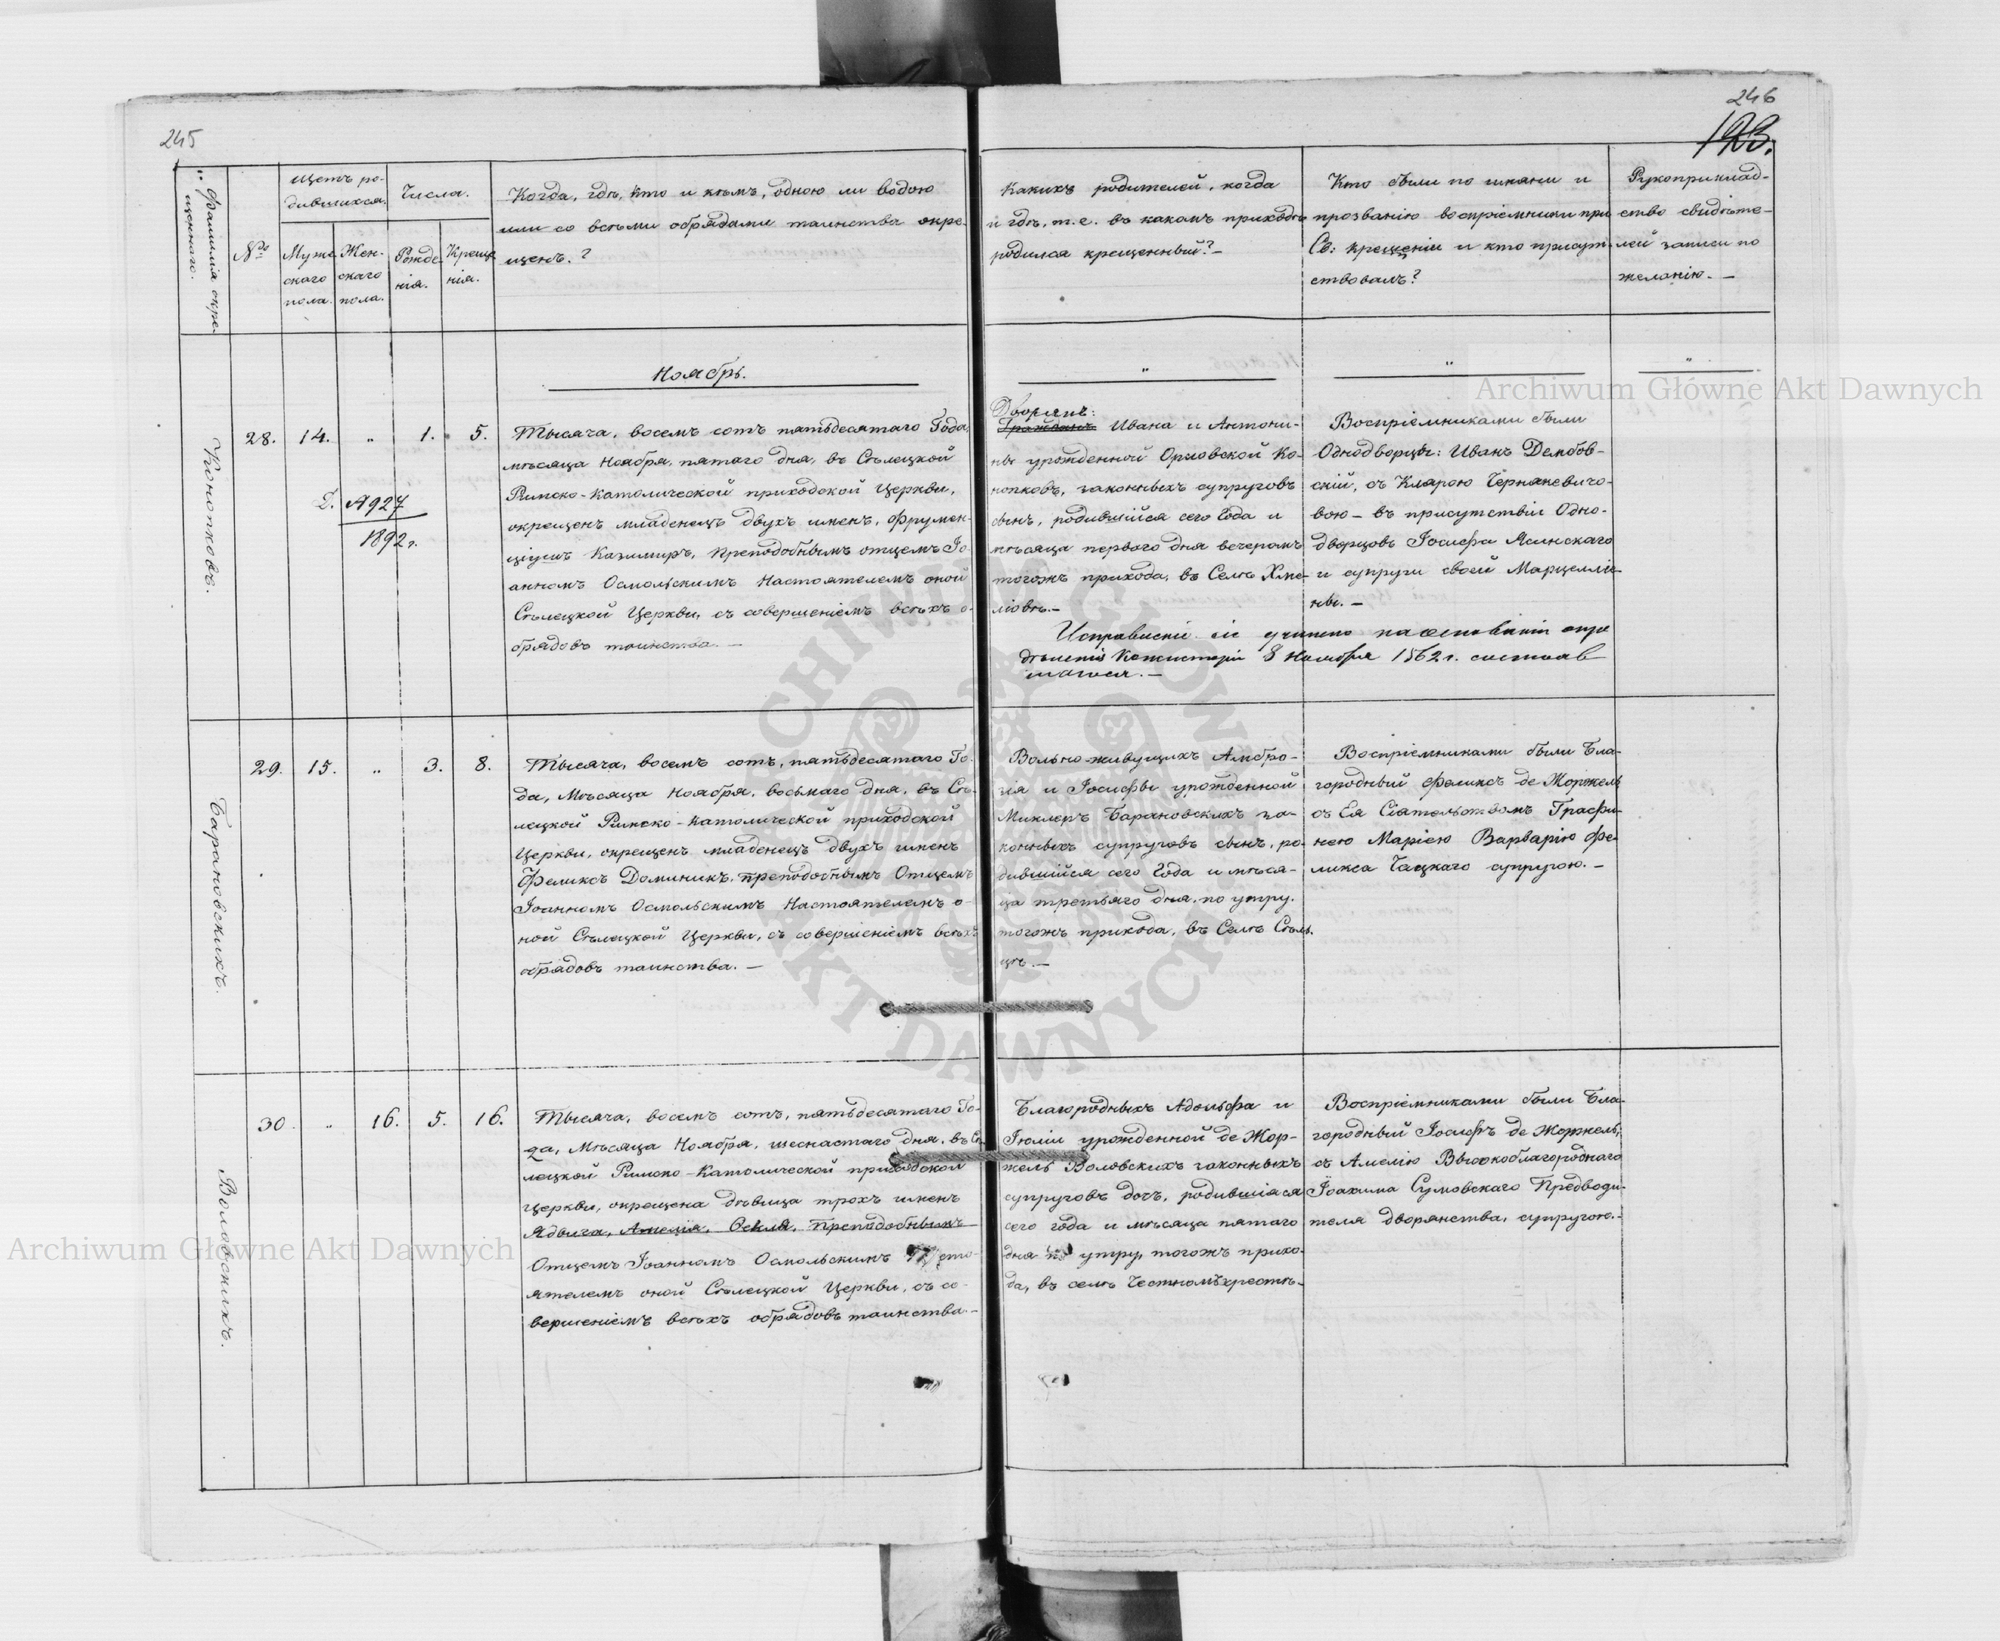 245
246
193.
Фамилія окре-
щеннаго.
№
щетъ ро-
дившихся.
Муже-
скаго
пола.
Жен-
скаго
пола.
Числа.
Рожде
нія.
Креще
нія.
Когда, гдѣ, кто и кѣмъ, одною ли водою
или со всѣми обрядами таинства окре-
щенъ.?
Какихъ родителей, когда
и гдѣ, т. е. въ какомъ приходѣ
родился крещенный? —
Кто были по имени и
прозванію воспріемники при
Св: крещеніи и кто присут-
ствовалъ?
Рукоприклад-
ство свидѣте-
лей записи по
желанію. —
Ноябрь.
Кнопковъ.
28. 14. „ 1. 5.
A927
1892 г.
Тысяча, восемь сотъ пятьдесятаго Года,
мѣсяца Ноября, пятаго дня, въ Сѣлецкой
Римско-Католической приходской Церкви,
окрещенъ младенецъ двухъ именъ, Фрумен-
ціушъ Казимиръ, Преподобнымъ отцемъ Іо-
анномъ Осмольскимъ Настоятелемъ оной
Сѣлецкой Церкви, съ совершеніемъ всѣхъ о-
брядовъ таинства. —
Дворянъ:
Ивана и Антони-
ны урожденной Орловской Ко-
нопковъ, законныхъ супруговъ
сынъ, родившійся сего Года и
мѣсяца перваго дня вечеромъ
тогожъ прихода, въ Селѣ Хме-
ліовѣ. —
Воспріемниками были
Однодворцы: Иванъ Дембов-
скій, съ Кларою Черняевичо-
вою — въ присутствіи Одно-
дворцовъ Іосифа Ясинскаго
и супруги своей Марцелли-
ны. —
Исправленіе сіе учинено на основаніи опре
дѣленія Консисторіи 8 Ноября 1862 г. состояв
шагося. —
Барановскихъ.
29. 15. „ 3. 8.
Тысяча, восемь сотъ, пятьдесятаго Го-
да, Мѣсяца Ноября, восьмаго дня, въ Сѣ-
лецкой Римско-Католической приходской
Церкви, окрещенъ младенецъ двухъ именъ
Феликсъ Доминикъ, преподобнымъ Отцемъ
Іоанномъ Осмольскимъ Настоятелемъ о-
ной Сѣлецкой Церкви, съ совершеніемъ всѣхъ
обрядовъ таинства. —
Вольно-живущихъ Амбро-
зія и Іосифы урожденной
Миклеръ Барановскихъ за-
конныхъ супруговъ сынъ, ро-
дившійся сего Года и мѣся-
ца третьяго дня, по утру.
тогожъ прихода, въ Селѣ Сѣль-
цѣ. —
Воспріемниками были Бла-
городный Феликсъ де Жоржель
съ Ея Сіятельствомъ Графи-
нею Маріею Варварію Фе-
ликса Чацкаго супругою. —
Воловскихъ.
30. „ 16. 5. 16.
Тысяча, восемь сотъ, пятьдесятаго Го-
да, Мѣсяца Ноября, шеснастаго дня, въ Сѣ-
лецкой Римско-Католической приходской
Церкви, окрещена дѣвица трохъ именъ
Ядвига, Амелія, преподобнымъ
Отцемъ Іоанномъ Осмольскимъ
ятелемъ оной Сѣлецкой Церкви, съ со-
вершеніемъ всѣхъ обрядовъ таинства. —
Благородныхъ Адольфа и
Іюліи урожденной де Жор-
жель Воловскихъ законныхъ
супруговъ дочь, родившіяся
сего года и мѣсяца пятаго
дня по утру, тогожъ прихо-
да, въ селѣ Честномъхрестѣ. —
Воспріемниками были Бла-
городный Іосифъ де Жоржель,
съ Амелію Высокоблагороднаго
Іоахима Сумовскаго Предводи-
теля дворянства, супругою. —
Archiwum Główne Akt Dawnych
Archiwum Główne Akt Dawnych
ARCHIWUM GŁÓWNE
AKT DAWNYCH